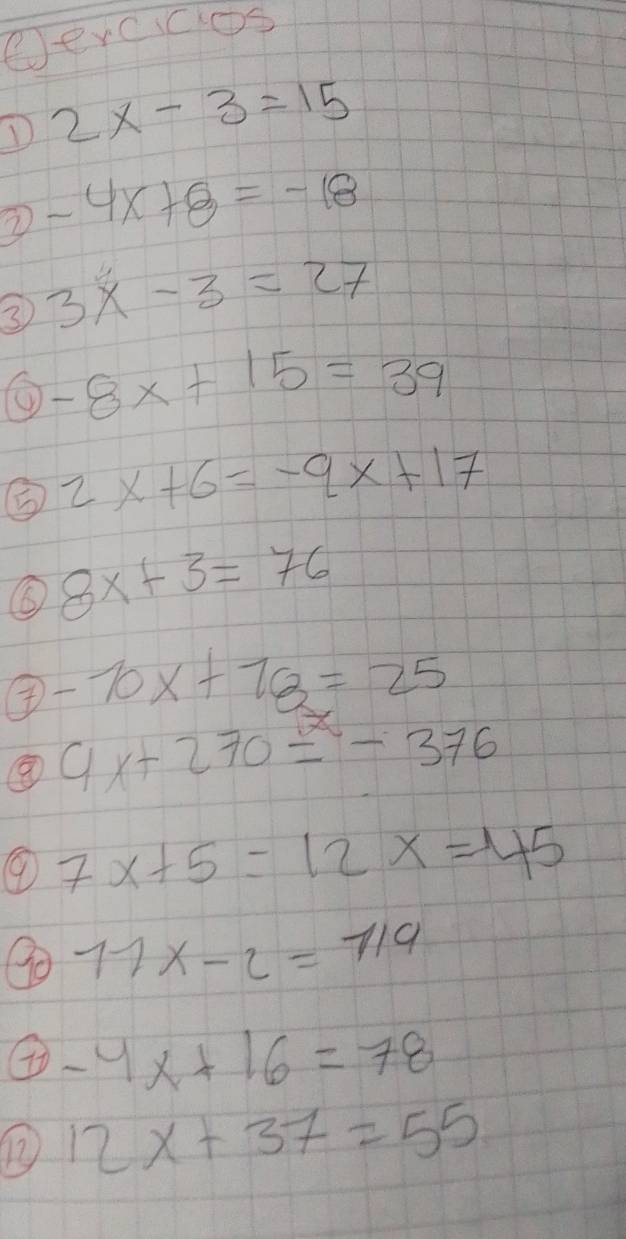 Ejercicios
① 2x - 3 = 15
② -4x + 8 = -18
③ 3x - 3 = 27
④ -8x + 15 = 39
⑤ 2x + 6 = -9x + 17
⑥ 8x + 3 = 76
⑦ -10x + 18 = 25
⑧ 9x + 270 = - 376
⑨ 7x + 5 = 12x = 45
⑩ 11x - 2 = 119
⑪ -4x + 16 = 78
⑫ 12x + 37 = 55